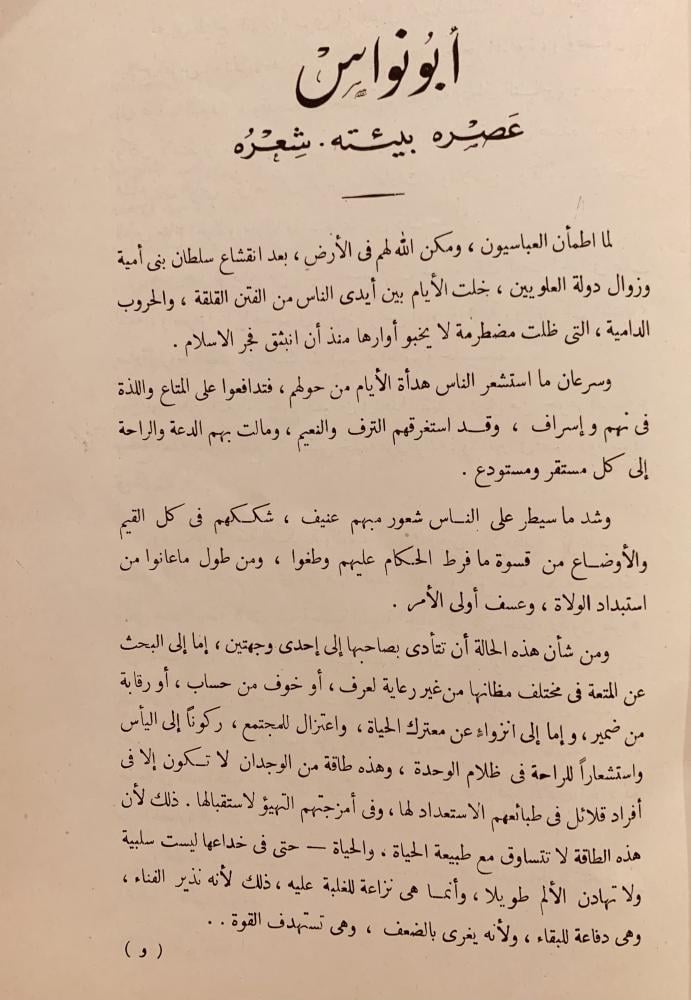 أبُو نواسْ
عَصْره بيئته . شِعْرُه
لما اطمأن العباسيون ، ومكن الله لهم فى الأرض ، بعد انقشاع سلطان بنى أمية
وزوال دولة العلويين ، خلت الأيام بين أيدى الناس من الفتن القلقة ، والحروب
الدامية ، التى ظلت مضطرمة لا يخبو أوارها منذ أن انبثق فجر الاسلام .
وسرعان ما استشعر الناس هدأة الأيام من حولهم ، فتدافعوا على المتاع واللذة
فى نهم وإسراف ، وقد استغرقهم الترف والنعيم ، ومالت بهم الدعة والراحة
إلى كل مستقر ومستودع .
وشد ما سيطر على الناس شعور مبهم عنيف ، شككهم فى كل القيم
والأوضاع من قسوة ما فرط الحكام عليهم وطغوا ، ومن طول ماعانوا من
استبداد الولاة ، وعسف أولى الأمر .
ومن شأن هذه الحالة أن تتأدى بصاحبها إلى إحدى وجهتين ، إما إلى البحث
عن المتعة فى مختلف مظانها من غير رعاية لعرف ، أو خوف من حساب ، أو رقابة
من ضمير ، وإما إلى انزواء عن معترك الحياة ، واعتزال للمجتمع ، ركوناً إلى اليأس
واستشعاراً للراحة فى ظلام الوحدة ، وهذه طاقة من الوجدان لا تكون إلا فى
أفراد قلائل فى طبائعهم الاستعداد لها ، وفى أمزجتهم التهيؤ لاستقبالها . ذلك لأن
هذه الطاقة لا تتساوق مع طبيعة الحياة ، والحياة — حتى فى خداعها ليست سلبية
ولا تهادن الألم طويلا ، وأنما هى نزاعة للغلبة عليه ، ذلك لأنه نذير الفناء ،
وهى دفاعة للبقاء ، ولأنه يغرى بالضعف ، وهى تستهدف القوة . .
( و )